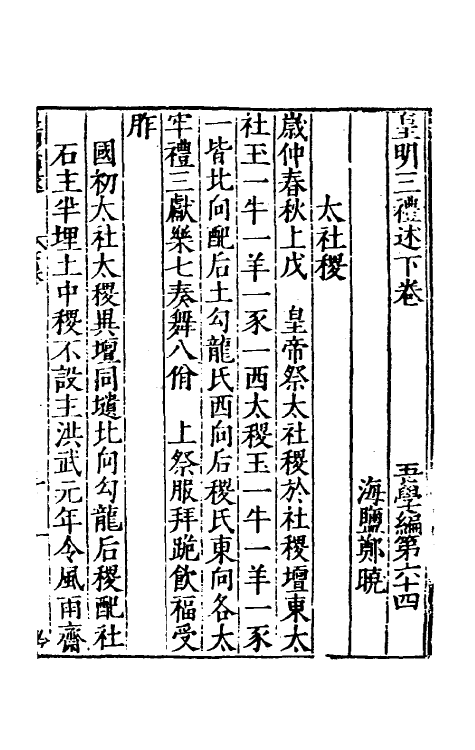 皇明三禮述下卷　吾學編第六十四
海鹽鄭曉
太社稷
歲仲春秋上戊　皇帝祭太社稷於社稷壇東太
社玉一牛一羊一豕一西太稷玉一牛一羊一豕
一皆北向配后土勾龍氏西向后稷氏東向各太
牢禮三獻樂七奏舞八佾　上祭服拜跪飲福受
胙
國初太社太稷異壇同壝北向勾龍后稷配社
石主半埋土中稷不設主洪武元年令風雨齋